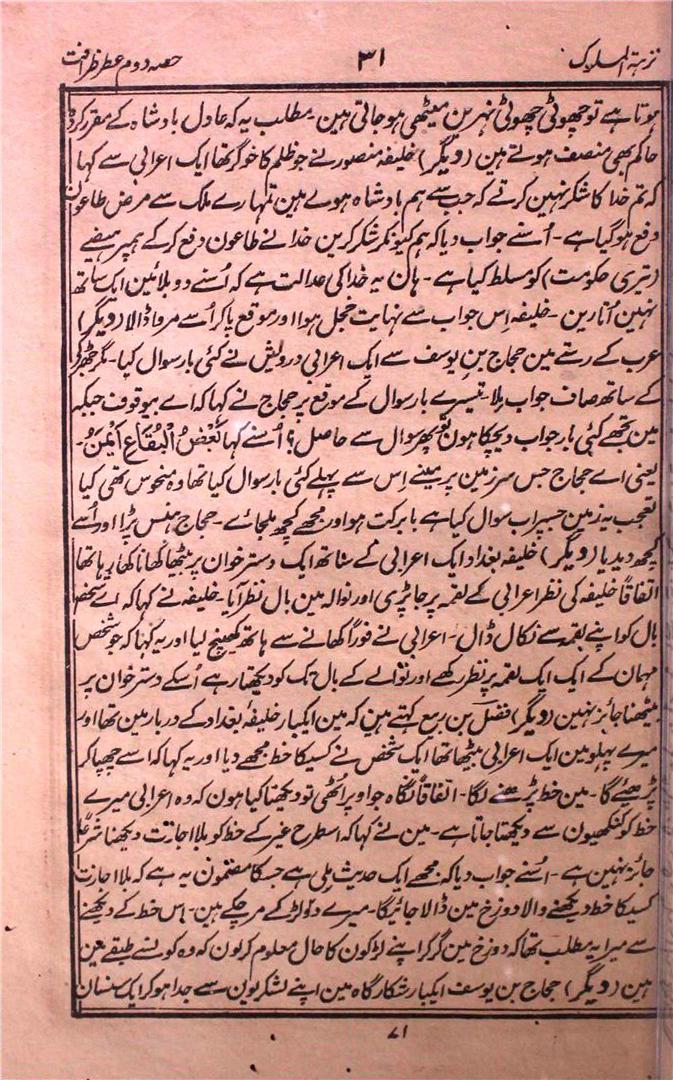 نزہۃ الملوک
۳۱
حصہ دوم عطر ظرافت
ہوتا ہے تو چھوٹی چھوٹی نہرین میٹھی ہو جاتی ہین۔ مطلب یہ کہ عادل بادشاہ کے مقرر کردہ
حاکم بھی منصف ہوتے ہین (دیگر) خلیفہ منصور نے جو ظلم کا خوگر تھا ایک اعرابی سے کہا
کہ تم خدا کا شکر نہین کرتے کہ جب سے ہم بادشاہ ہوے ہین تمہارے ملک سے مرض طاعون
دفع ہو گیا ہے۔ اُسنے جواب دیا کہ ہم کیونکر شکر کرین خدا نے طاعون دفع کر کے ہمپر ہیضے
(تیری حکومت) کو مسلط کیا ہے۔ ہان یہ خدا کی عدالت ہے کہ اُسنے دو بلائین ایک ساتھ
نہین اُتارین۔ خلیفہ اِس جواب سے نہایت خجل ہوا اور موقع پا کر اُسے مروا ڈالا (دیگر)
عرب کے رستے مین حجاج بن یوسف سے ایک اعرابی درویش نے کئی بار سوال کیا۔ مگر جھڑکی
کے ساتھ صاف جواب ملا۔ تیسرے بار سوال کے موقع پر حجاج نے کہا کہ اے بیوقوف جبکہ
مین تجھے کئی بار جواب دیچکا ہون تو پھر سوال سے حاصل؟ اُسنے کہا بَعْضُ الْبِقَاعِ اَیْمَنُ۔
یعنی اے حجاج جس سرزمین پر مینے اِس سے پہلے کئی بار سوال کیا تھا وہ منحوس تھی کیا
تعجب یہ زمین جسپر اب سوال کیا ہے بابرکت ہو اور مجھے کچھ ملجائے۔ حجاج ہنس پڑا اور اُسے
کچھ دیدیا (دیگر) خلیفہ بغداد ایک اعرابی کے ساتھ ایک دسترخوان پر بیٹھا کھانا کھا رہا تھا
اتفاقاً خلیفہ کی نظر اعرابی کے لقمہ پر جا پڑی اور نوالہ مین بال نظر آیا۔ خلیفہ نے کہا کہ اے شخص
بال کو اپنے لقمہ سے نکال ڈال۔ اعرابی نے فوراً کھانے سے ہاتھ کھینچ لیا اور یہ کہا کہ جو شخص
مہمان کے ایک ایک لقمہ پر نظر رکھے اور نوالے کے بال تک کو دیکھتا رہے اُسکے دسترخوان پر
بیٹھنا جائز نہین (دیگر) فضل بن ربیع کہتے ہین کہ مین ایکبار خلیفۂ بغداد کے دربار مین تھا اور
میرے پہلو مین ایک اعرابی بیٹھا تھا ایک شخص نے کسیکا خط مجھے دیا اور یہ کہا کہ اسے چھپا کر
پڑھیئے گا۔ مین خط پڑھنے لگا۔ اتفاقاً نگاہ جو اوپر اُٹھی تو دیکھتا کیا ہون کہ وہ اعرابی میرے
خط کو کنکھیون سے دیکھتا جاتا ہے۔ مین نے کہا کہ اسطرح غیر کے خط کو بلا اجازت دیکھنا شرعاً
جائز نہین ہے۔ اُسنے جواب دیا کہ مجھے ایک حدیث ملی ہے جسکا مضمون یہ ہے کہ بلا اجازت
کسیکا خط دیکھنے والا دوزخ مین ڈالا جائیگا۔ میرے دو لڑکے مر چکے ہین۔ اس خط کے دیکھنے
سے میرا یہ مطلب تھا کہ دوزخ مین گر کر اپنے لڑکون کا حال معلوم کرون کہ وہ کونسے طبقے مین
ہین (دیگر) حجاج بن یوسف ایکبار شکارگاہ مین اپنے لشکریون سے جدا ہو کر ایک سنسان
۷۱